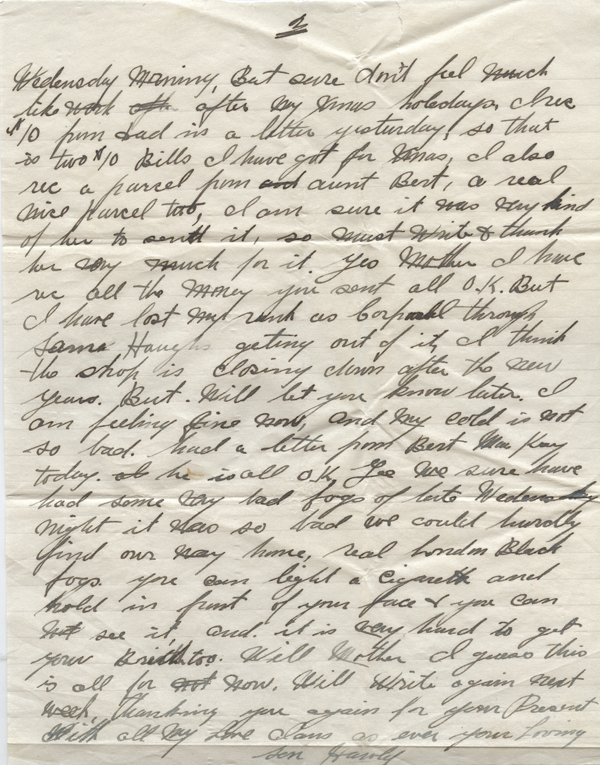 2
Wedensday Morning, But sure don't feel much
like work after my Xmas holedays, I rec
$10 from Dad in a letter yesterday, so that
is two $10 Bills I have got for Xmas, I also
rec a parcel from aunt Bert, a real
nice parcel too, I am sure it was very kind
of her to send it, so must write & thank
her very much for it. Yes Mother I have
rec all the money you sent all O.K. But
I have lost my rank as Corporal through
getting out of it, I think
the shop is closing down after the new
years. But. Will let you know later. I
am feeling fine now, and my cold is not
so bad. had a letter from Bert Mac Kay
today. he is all O.K, Gee we sure have
had some very bad fogs of late Wedensday
night it was so bad we could hardly
find our way home, real London Black
fogs. you can light a cigarett and
hold in front of your face & you can
not see it, and. it is very hard to get
your Breith too. Will Mother I guess this
is all for now. Will Write again next
week, thanking you again for your Present
With all my Love I am as ever your Loving
son Harold